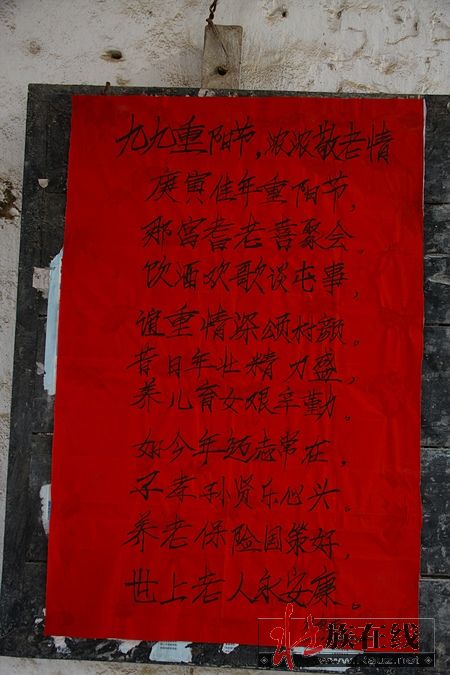 九九重阳节，浓浓敬老情
庚寅佳年重阳节，
那宫耆老喜聚会。
饮酒欢歌谈屯事，
谊重情深颂村颜。
昔日年壮精力盛，
养儿育女艰辛勤。
如今年迈志常在，
子孝孙贤乐心头。
养老保险国策好，
世上老人永安康。
壮族在线
www.rauz.net